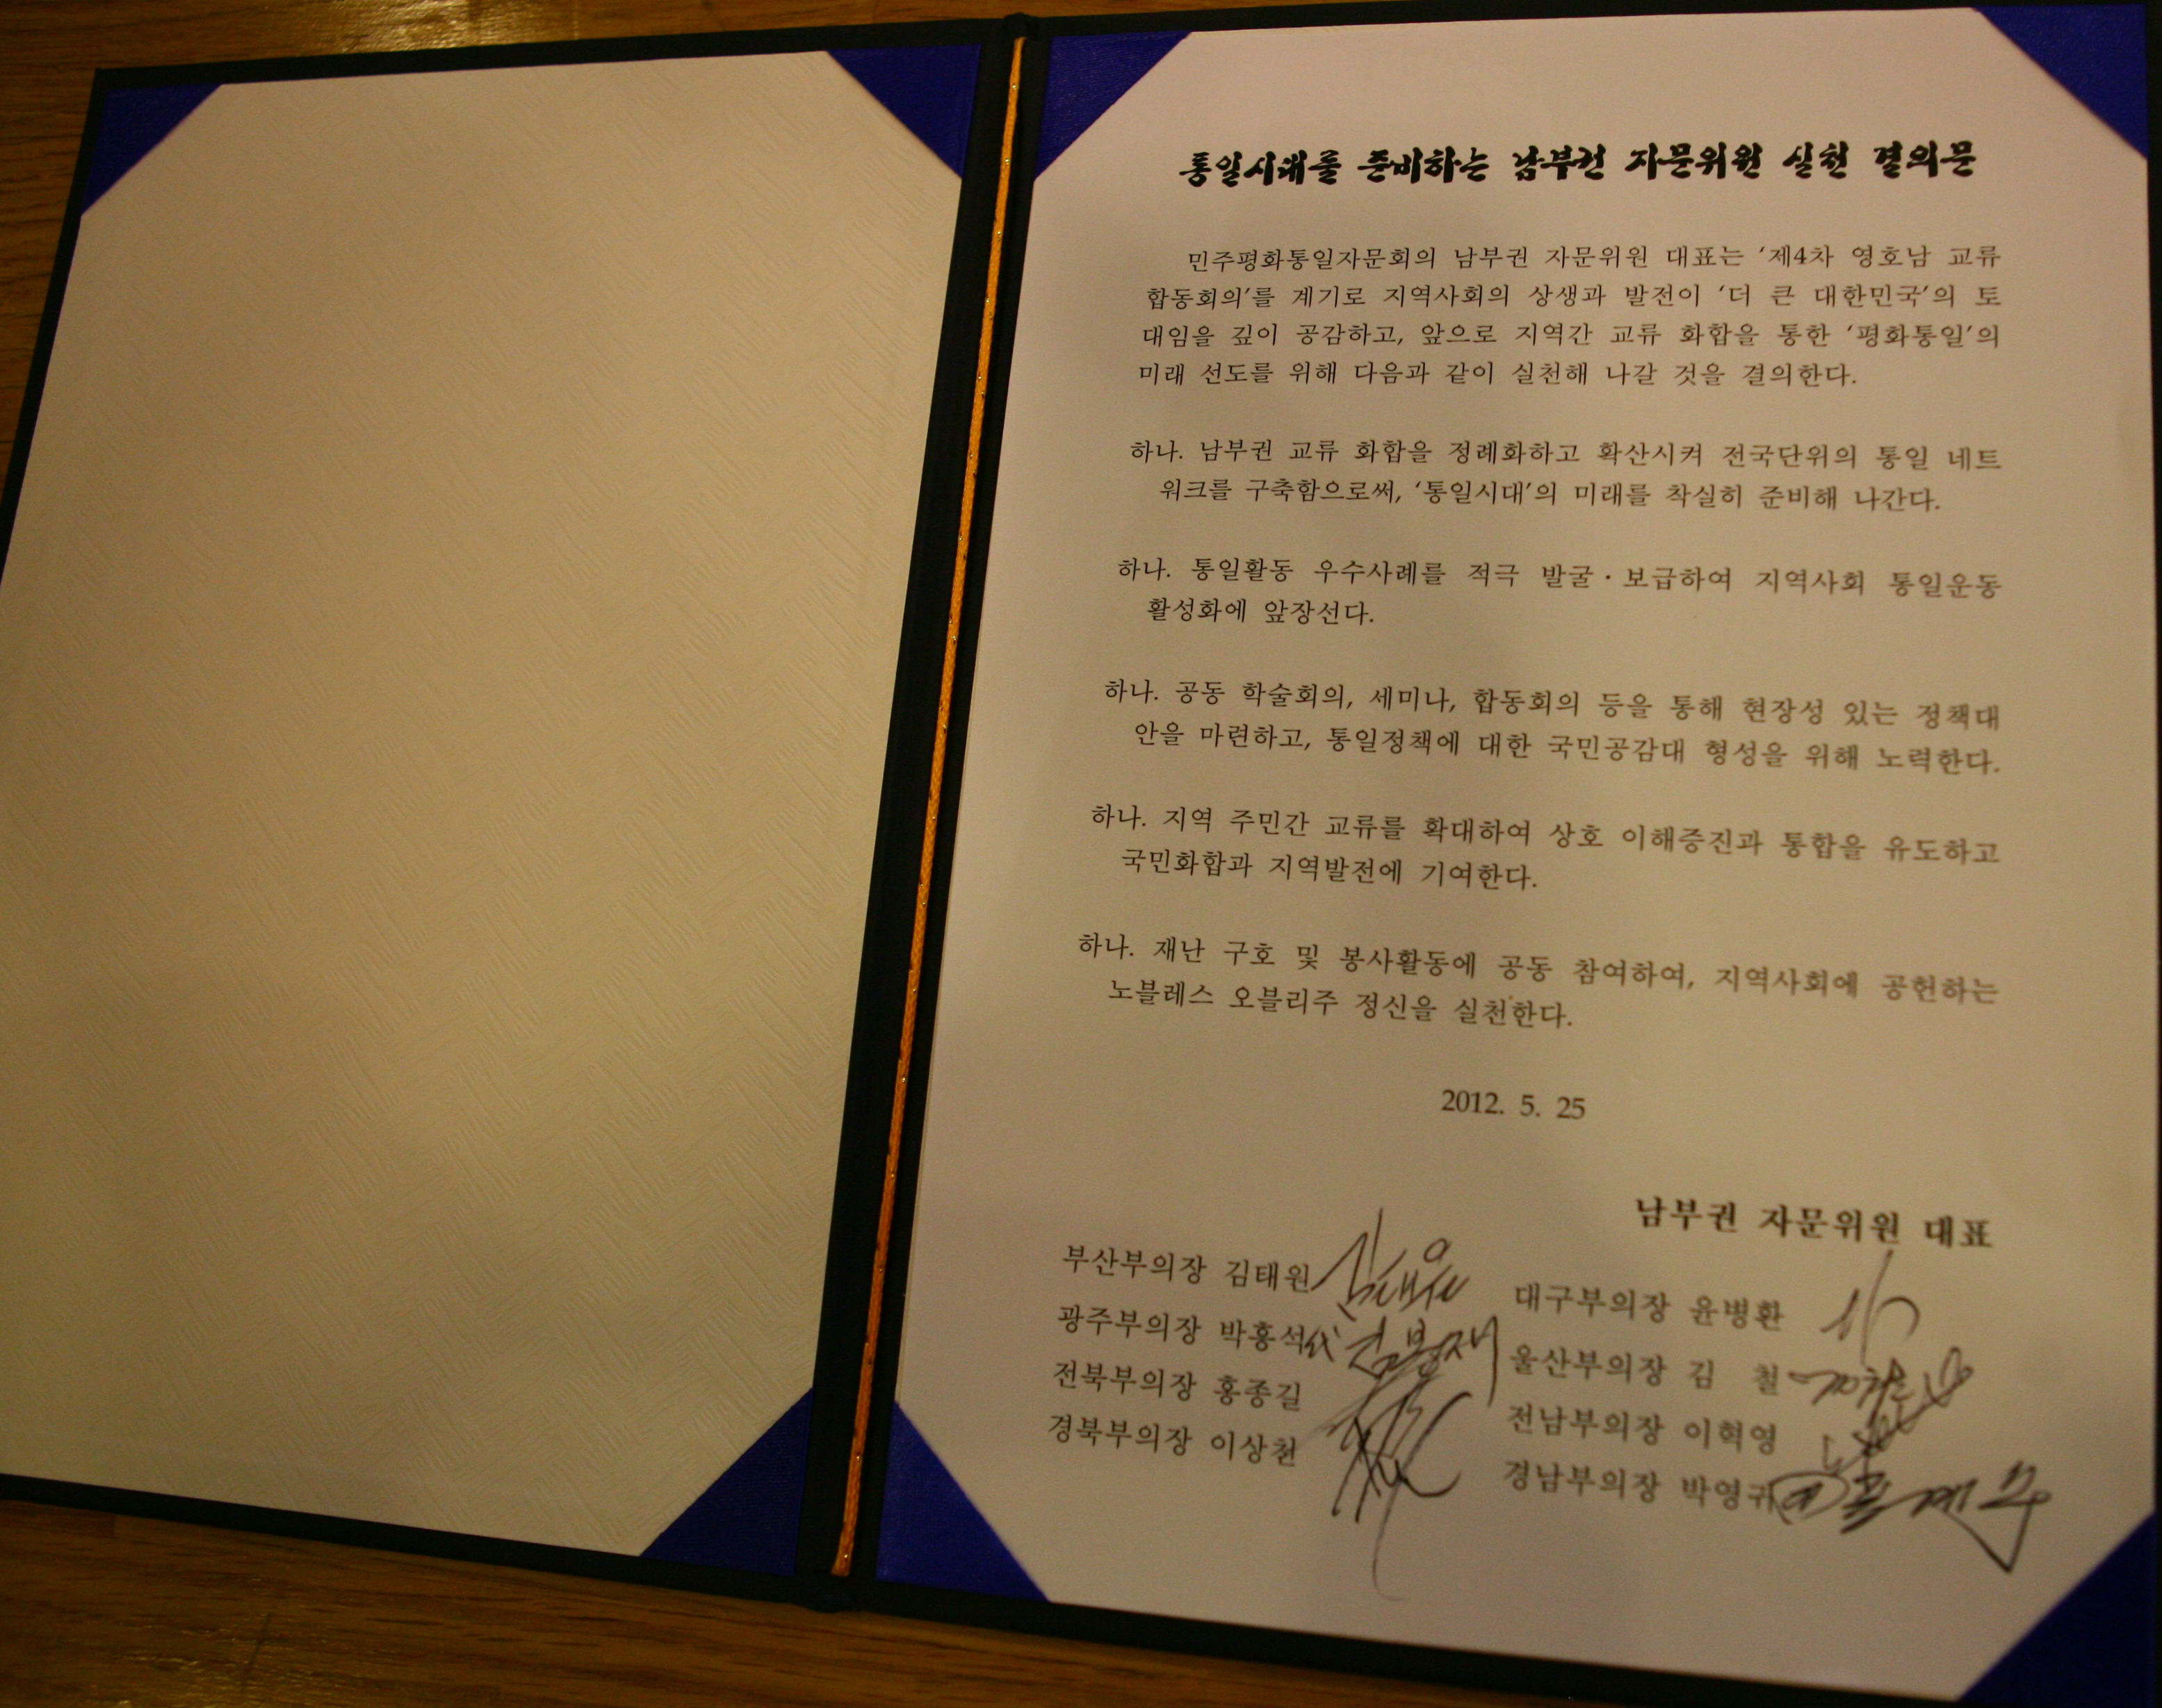 통일시대를 준비하는 남부권 자문위원 실천 결의문
민주평화통일자문회의 남부권 자문위원 대표는 '제4차 영호남 교류
합동회의'를 계기로 지역사회의 상생과 발전이 '더 큰 대한민국'의 토
대임을 깊이 공감하고, 앞으로 지역간 교류 화합을 통한 '평화통일'의
미래 선도를 위해 다음과 같이 실천해 나갈 것을 결의한다.
하나. 남부권 교류 화합을 정례화하고 확산시켜 전국단위의 통일 네트
워크를 구축함으로써, '통일시대'의 미래를 착실히 준비해 나간다.
하나. 통일활동 우수사례를 적극 발굴·보급하여 지역사회 통일운동
활성화에 앞장선다.
하나. 공동 학술회의, 세미나, 합동회의 등을 통해 현장성 있는 정책대
안을 마련하고, 통일정책에 대한 국민공감대 형성을 위해 노력한다.
하나. 지역 주민간 교류를 확대하여 상호 이해증진과 통합을 유도하고
국민화합과 지역발전에 기여한다.
하나. 재난 구호 및 봉사활동에 공동 참여하여, 지역사회에 공헌하는
노블레스 오블리주 정신을 실천한다.
2012. 5. 25
남부권 자문위원 대표
부산부의장 김태원 김태원
대구부의장 윤병환
광주부의장 박흥석 代
울산부의장 김 철
전북부의장 홍종길
전남부의장 이혁영
경북부의장 이상천
경남부의장 박영귀